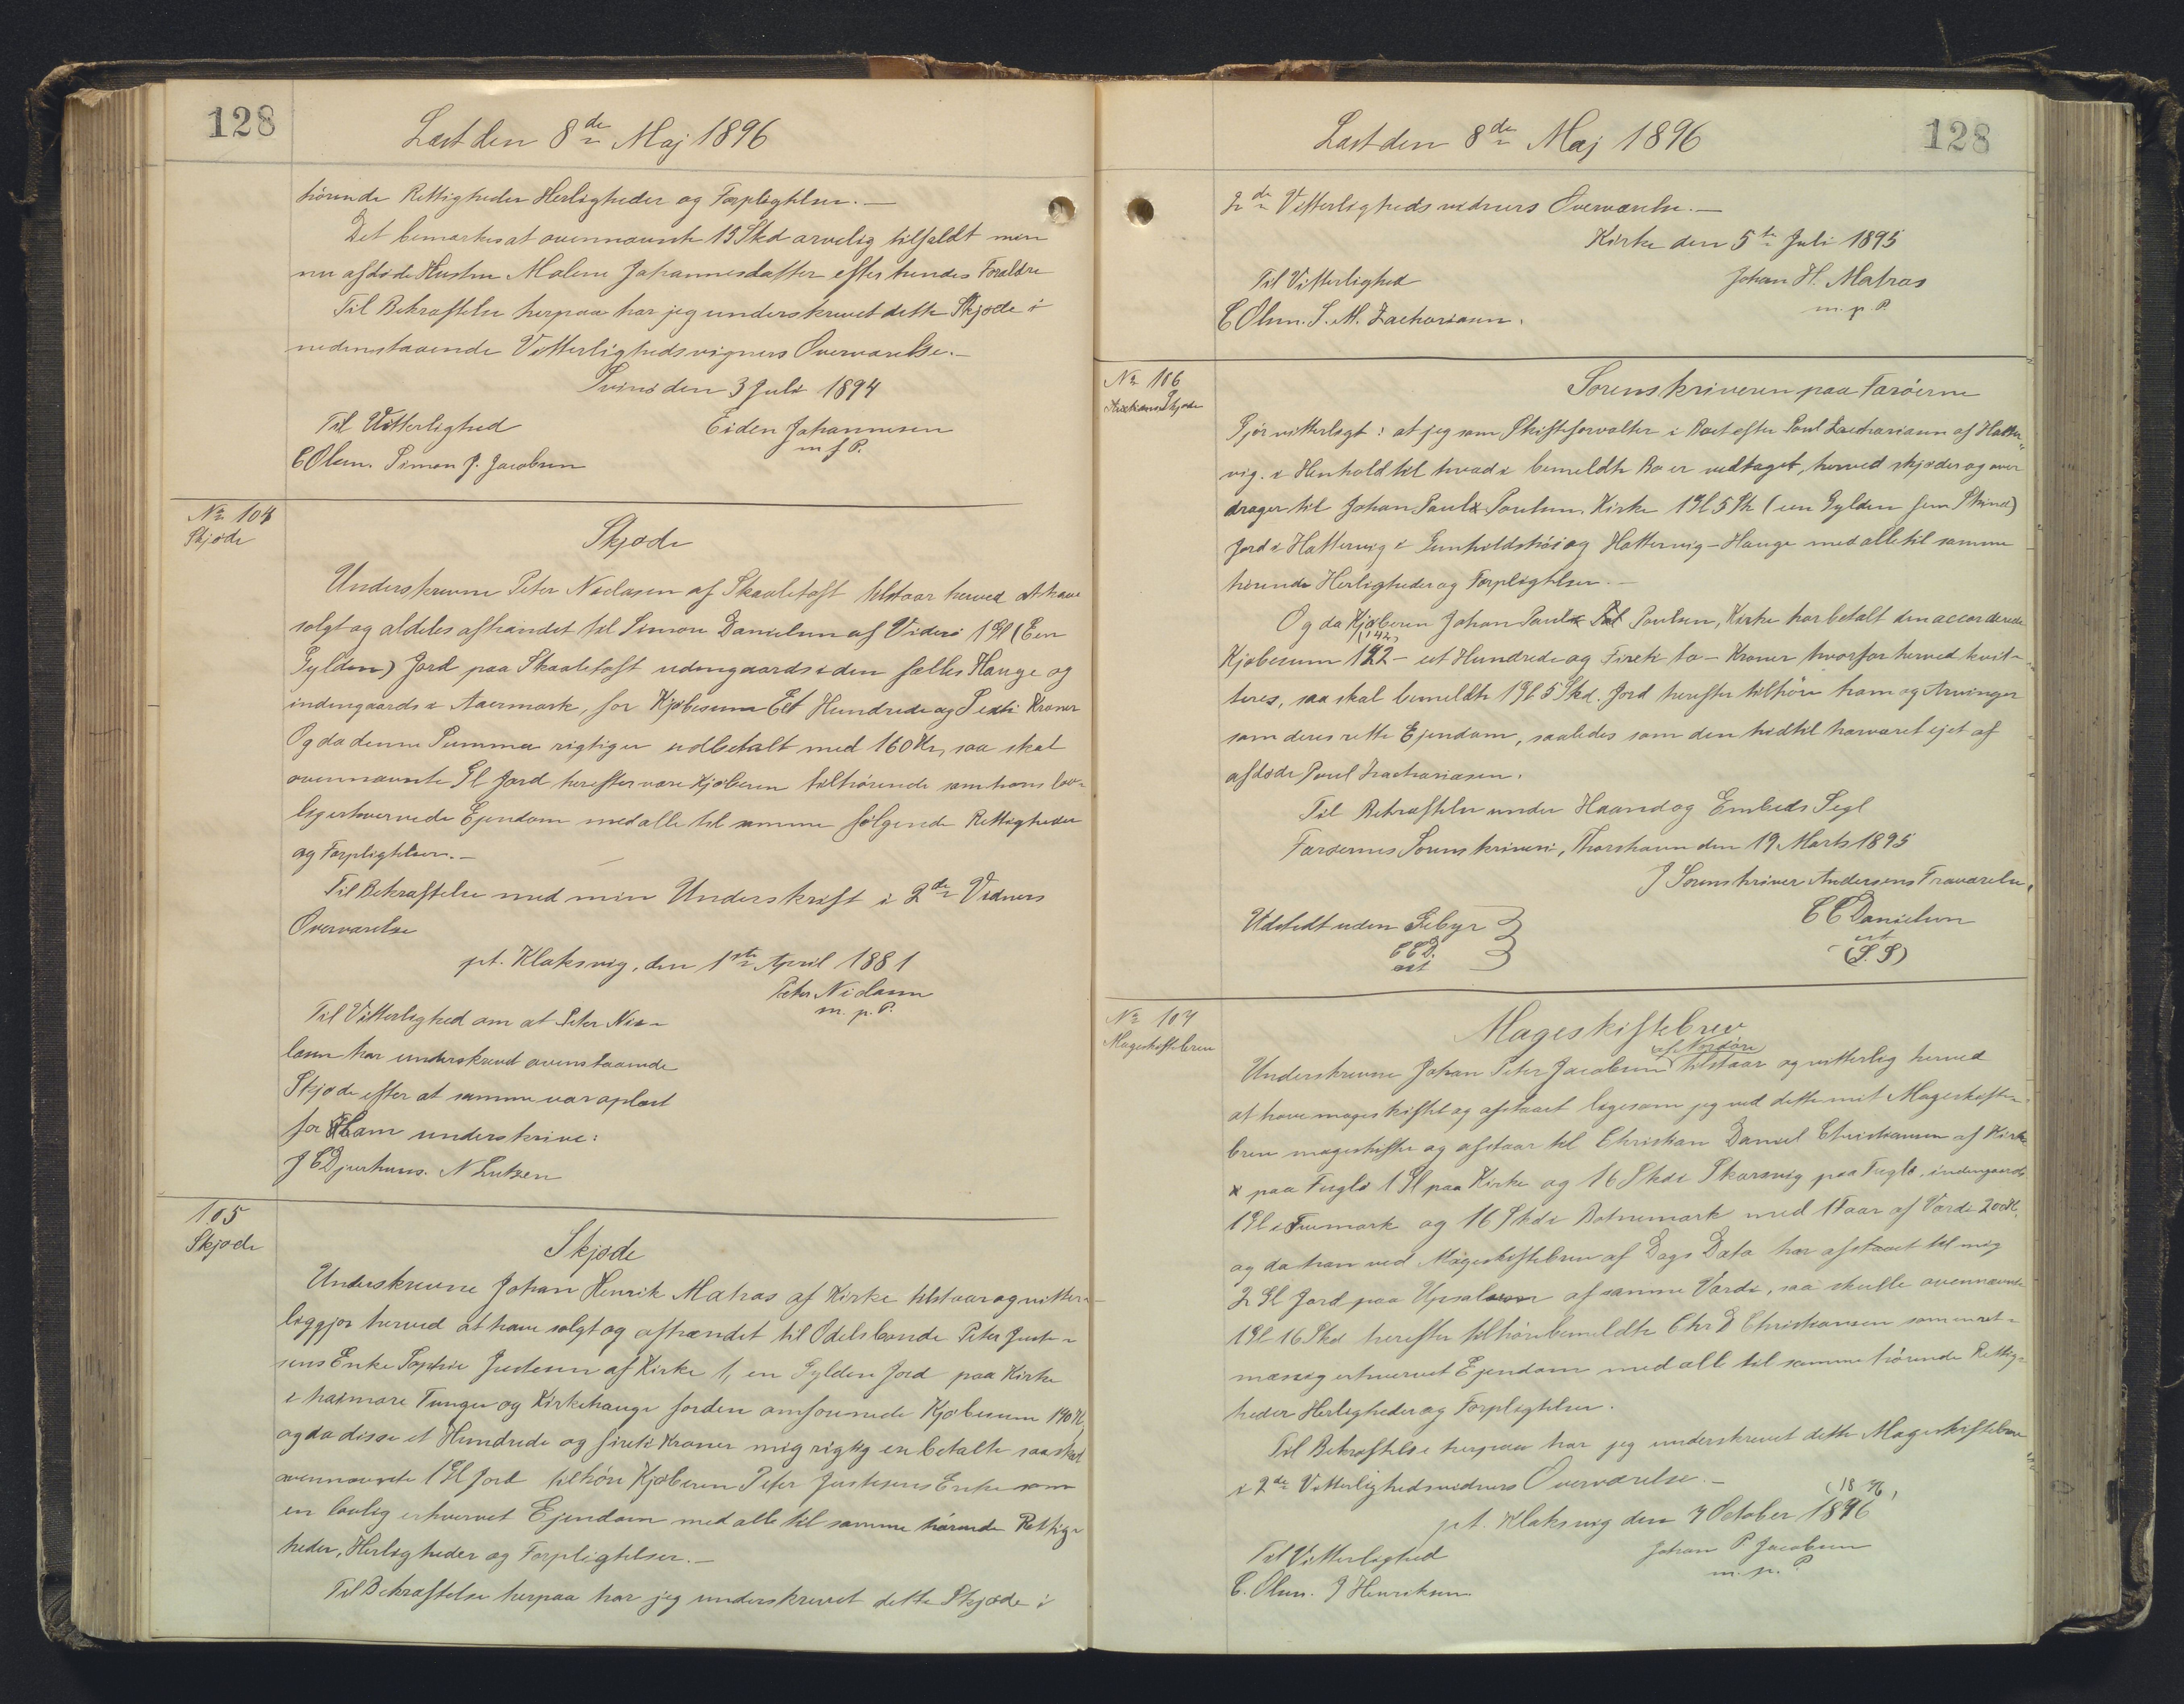 128
Læst den 8de Maj 1896
hörende Rettigheder Herligheder og Forpligtelser.—
Det bemærkes at ovennævnte 13 Skd arvelig tilfaldt min
nu afdøde Hustru Malene Johannesdatter efter hendes Forældre
Til Bekræftelse herpaa har jeg underskrevet dette Skjøde i
nedenstaaende Vitterlighedsvigners Overværelse.—
Svinö den 3 Juli 1894
Til Vitterlighed
Eiden Johannesen
m f P.
C Olsen. Simon J. Jacobsen
No 104
Skjöde
Skjøde
Underskrevne Peter Niclasen af Skaaletoft tilstaar herved at have
solgt og aldeles afhændet til Simon Danielsen af Viderö 1 Gl (Een
Gylden) Jord paa Skaaletoft udengaards i den fælles Hauge og
indengaards i Aaermark, for Kjøbesum Eet Hundrede og Sexti Kroner
Og da denne Summa rigtig er udbetalt med 160 Kr, saa skal
ovennævnte Gl Jord herefter være Kjøberen tilhørende som hans lov-
lig erhvervede Ejendom med alle til samme følgende Rettigheder
og Forpligtelser.—
Til Bekræftelse med min Underskrift i 2de Vidners
Overværelse
pt. Klaksvig, den 1ste April 1881
Peter Niclasen
m. p. P.
Til Vitterlighed om at Peter Nic-
lasen har underskrevet ovenstaaende
Skjøde efter at samme var oplæst
for Ham underskrive:
J C Djurhuus. N Lutzen
105
Skjøde
Skjøde
Underskrevne Johan Henrik Matras af Kirke tilstaar og vitter-
liggjør herved at have solgt og afhændet til Odelsbonde Peter Juste-
sens Enke Sophie Justesen af Kirke 1, en Gylden Jord paa Kirke
i haimare Tunger og Kirkehauge for den omforenede Kjøbesum 140 Kr,
og da disse et Hundrede og fireti Kroner mig rigtig er betalte saa skal
ovennævnte 1 Gl Jord tilhøre Kjøberen Peter Justesens Enke som
en lovlig erhvervet Ejendom med alle til samme hørende Rettig-
heder, Herligheder og Forpligtelser.—
Til Bekræftelse herpaa har jeg underskrevet dette Skjøde i
Læst den 8de Maj 1896
128
2de Vitterligheds vidners Overværelse.—
Kirke den 5te Juli 1895
Til Vitterlighed
Johan H. Matras
m. p. P.
C Olsen. S. M. Zachariasen.
No 106
Auctions Skjøde
Sorenskriveren paa Færöerne
Gjör vitterligt: at jeg som Skifteforvalter i Boet efter Poul Zachariasen af Hatter-
vig. i Henhold til hvad i bemeldte Bo er vedtaget, herved skjøder og over
drager til Johan Paul Poulsen, Kirke 1 Gl 5 Sk (een Gylden fem Skind)
Jord i Hattervig i Gunhildshöi og Hattervig-Hauge med alle til samme
hörende Herligheder og Forpligtelser.—
Og da Kjøberen Johan Paul Poulsen, Kirke har betalt den accorderede
(142)
Kjøbesum 142 – et Hundrede og Fireti to – Kroner hvorfor herved kvit-
teres, saa skal bemeldte 1 Gl 5 Skd. Jord herefter tilhöre ham og Arvinger
som deres rette Ejendom, saaledes som den hidtil har været ejet af
afdøde Poul Zachariasen.
Til Bekræftelse under Haand og Embeds Segl
Færøernes Sorenskriveri, Thorshavn den 19 Marts 1895
I Sorenskriver Andersens Fraværelse,
Udstedt uden Gebyr
C C Danielsen
cst
C C D.
cst
(L. S)
No 107
Mageskiftebrev
Mageskiftebrev
(af Nordöre)
Underskrevne Johan Peter Jacobsen tilstaar og vitterlig herved
at have mageskiftet og afstaaet ligesom jeg ved dette mit Mageskifte-
brev mageskifter og afstaar til Christian Daniel Christiansen af Kirke
paa Fuglö 1 Gl paa Kirke og 16 Skd i Skarsvig paa Fuglö, indengaards
1 Gl i Fuemark og 16 Skd i Botnemark med 1 Faar af Værdi 200 K.
og da han ved Mageskiftebrev af Dags Dato har afstaaet til mig
2 Gl Jord paa Upsalum af samme Værdi, saa skulle ovennævnte
1 Gl 16 Skd herefter tilhöre bemeldte Chr D Christiansen som en ret-
mæssig erhvervet Ejendom med alle til samme hörende Rettig-
heder Herligheder og Forpligtelser.
Til Bekræftelse herpaa har jeg underskrevet dette Mageskiftebrev
i 2de Vitterlighedsvidners Overværelse.—
(18 96)
pt. Klaksvig den 7 October 1896
Til Vitterlighed
Johan P Jacobsen
m. p. P
C. Olsen. J Henriksen